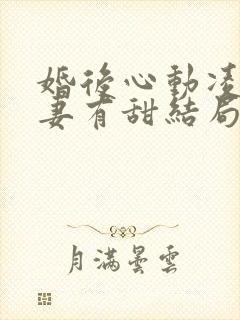 婚後心動凌
妻有甜結局
月滿曇雲